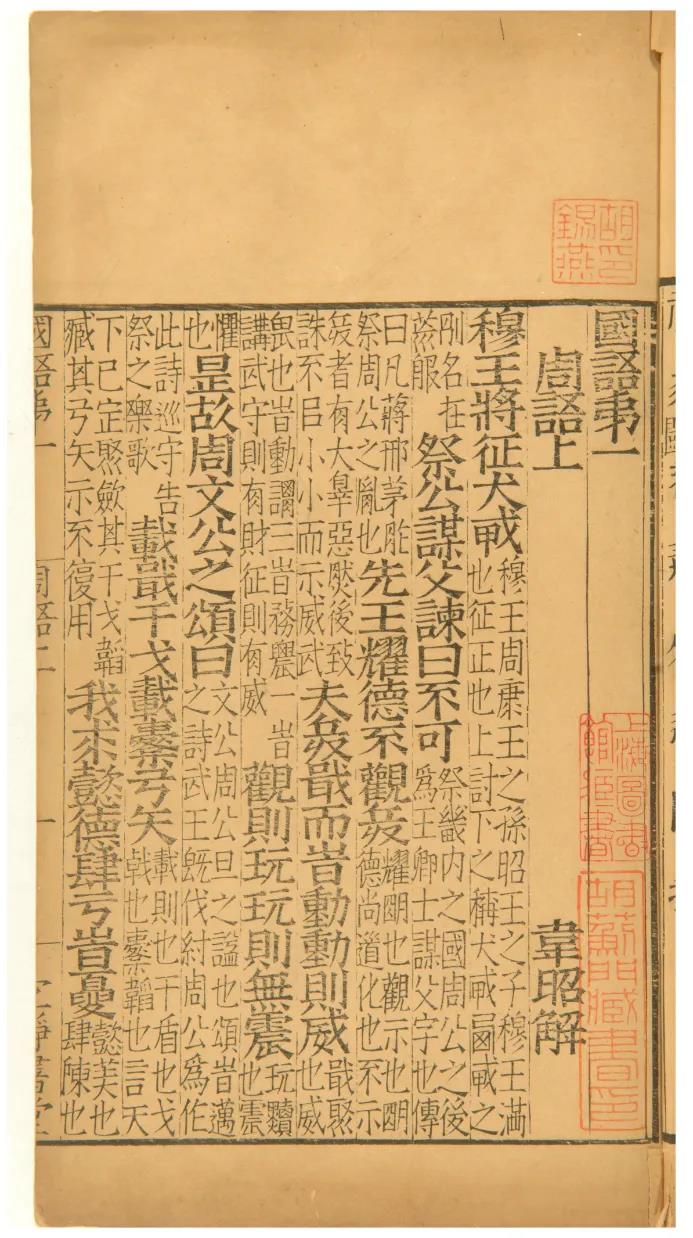 國語苐一
周語上
韋昭解
穆王將征犬戎
穆王周康王之孫昭王之子穆王滿
也征正也上討下之稱犬戎西戎之
別名在
荒服
祭公謀父諫曰不可
祭畿内之國周公之後
爲王卿士謀父字也傳
曰凡蔣邢茅胙
祭周公之胤也
先王耀德不觀兵
耀明也觀示也明
德尚道化也不示
兵者有大辠惡然後致
誅不㠯小小而示威武
夫兵戢而旹動動則威
戢聚
也威
畏也旹動謂三旹務農一旹
講武守則有財征則有威
觀則玩玩則無震
玩黷
也震
懼
也
是故周文公之頌曰
文公周公旦之諡也頌旹邁
之詩武王既伐紂周公爲作
此詩巡守告
祭之樂歌
載戢干戈載櫜弓矢
載則也干盾也戈
戟也櫜韜也言天
下已定聚斂其干戈韜
藏其弓矢示不復用
我求懿德肆亐旹夏
懿美也
肆陳也
國語苐一
周語二
一
胡印錫燕
上海圖書館藏書